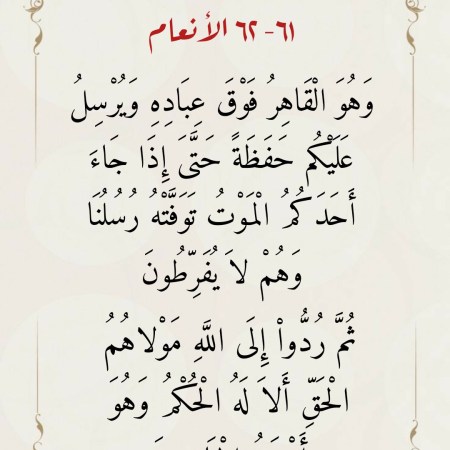 ٦١- ٦٢ الأنعام
وَهُوَ الْقَاهِرُ فَوْقَ عِبَادِهِ وَيُرْسِلُ
عَلَيْكُم حَفَظَةً حَتَّىَ إِذَا جَاءَ
أَحَدَكُمُ الْمَوْتُ تَوَفَّتْهُ رُسُلُنَا
وَهُمْ لاَ يُفَرِّطُونَ
ثُمَّ رُدُّواْ إِلَى اللَّهِ مَوْلاهُمُ
الْحَقِّ أَلاَ لَهُ الْحُكْمُ وَهُوَ